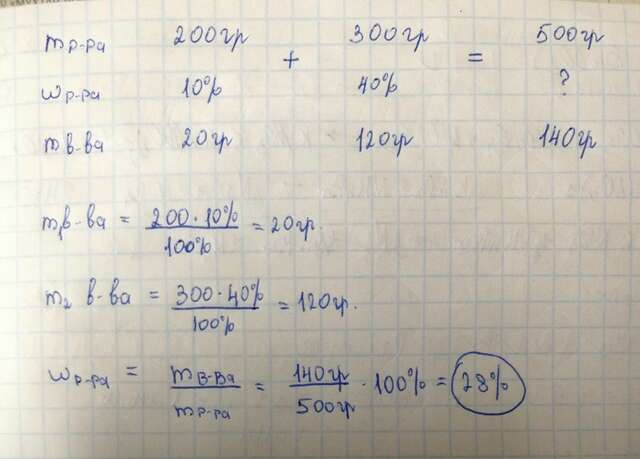 mр-ра 200гр + 300гр = 500гр
ωр-ра 10% 40% ?
mв-ва 20гр 120гр 140гр
m₁в-ва = 200·10% / 100% = 20гр.
m₂ в-ва = 300·40% / 100% = 120гр.
ωр-ра = mв-ва / mр-ра = 140гр / 500гр · 100% = 28%